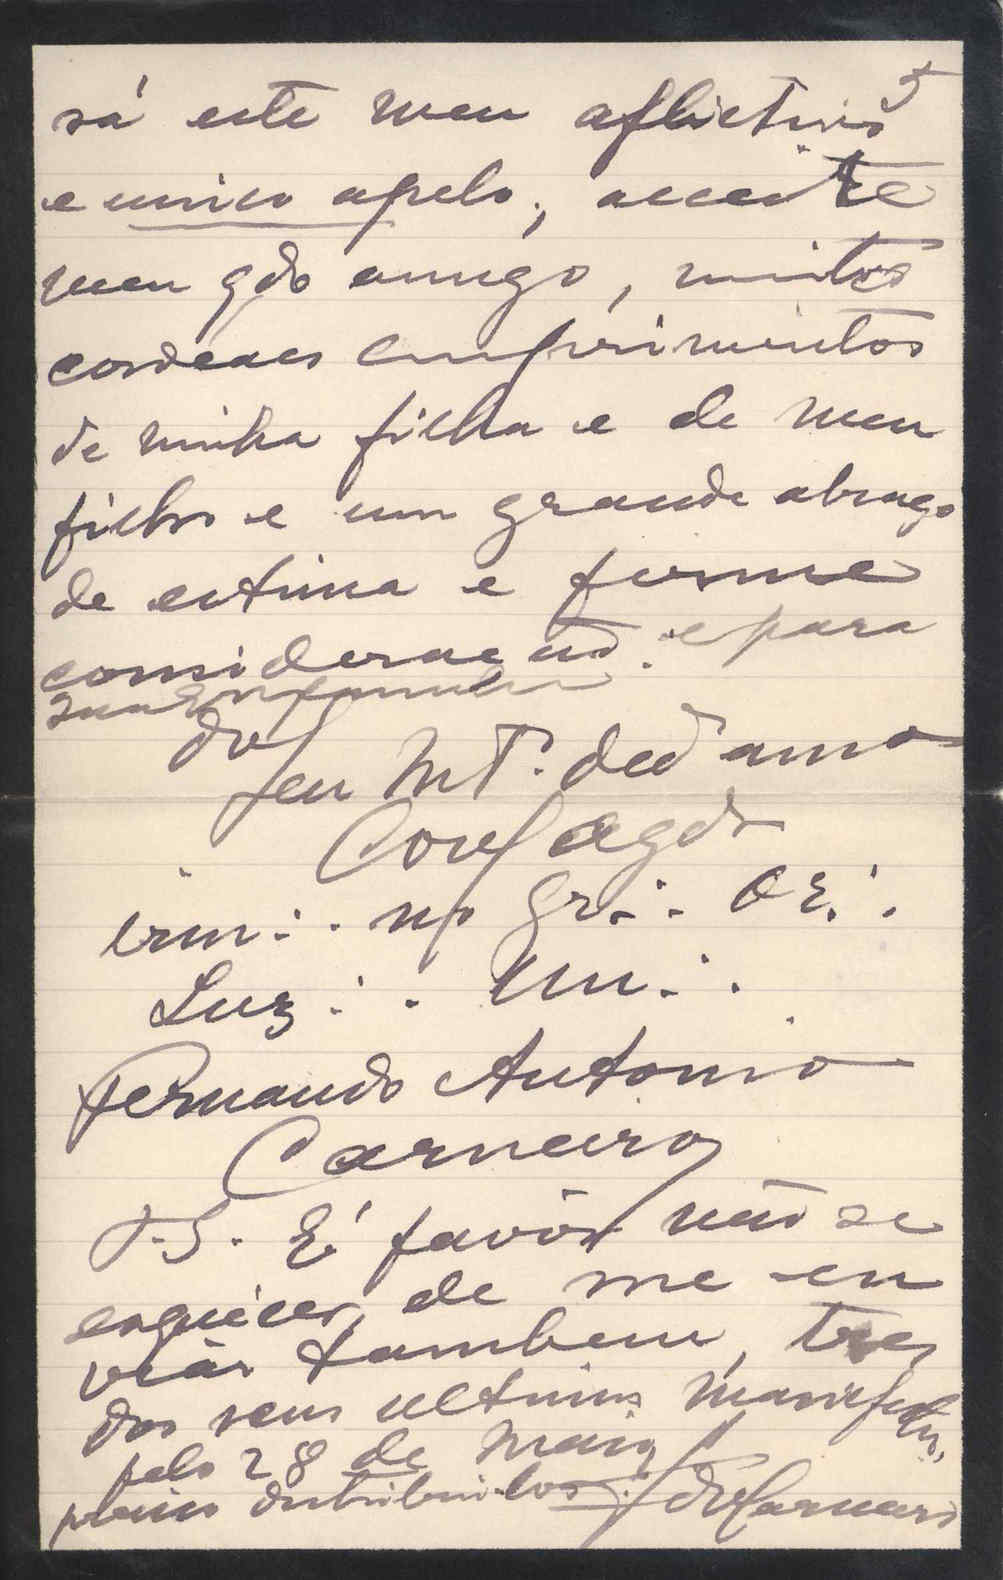 5
sá este meu aflictivo
e unico apelo, acceite
meu qdo amigo, muitos
cordeaes cumprimentos
de minha filha e de meu
filho e um grande abraço
de estima e firme
consideração. e para
sua Ex familia
do
seu Mt. ded amo
Conf agdo
irm∴ no Gr∴ Or∴
Luz∴ Un∴
Fernando Antonio
Carneiro
P.S. É favôr não se
esquecer, de me en
viar tambem, tres
dos seus ultimos manifestos,
pelo 28 de Maio
distribuidos. Carneiro